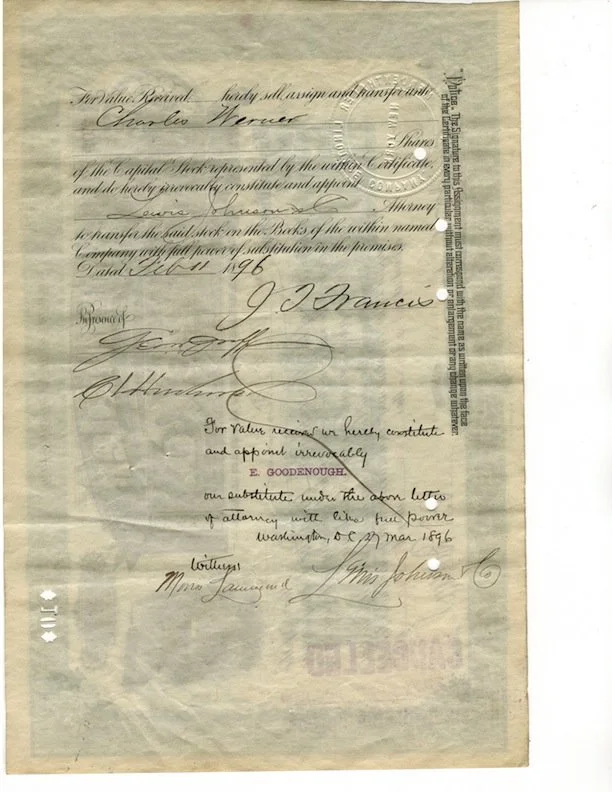 For Value Received hereby sell, assign and transfer unto
Charles Werner
Shares
of the Capital Stock represented by the within Certificate,
and do hereby irrevocably constitute and appoint
Lewis Johnson & Co Attorney
to transfer the said stock on the Books of the within named
Company with full power of substitution in the premises.
Dated Feb 11 1896
J. T. Francis
In Presence of
For value received we hereby constitute
and appoint irrevocably
E. GOODENOUGH.
our substitute under the above letter
of attorney with like full power
Washington, D C 27 Mar 1896
Witness
Lewis Johnson & Co
CANCELLED
Notice. The Signature to this Assignment must correspond with the name as written upon the face
of the Certificate in every particular without alteration or enlargement or any change whatever.